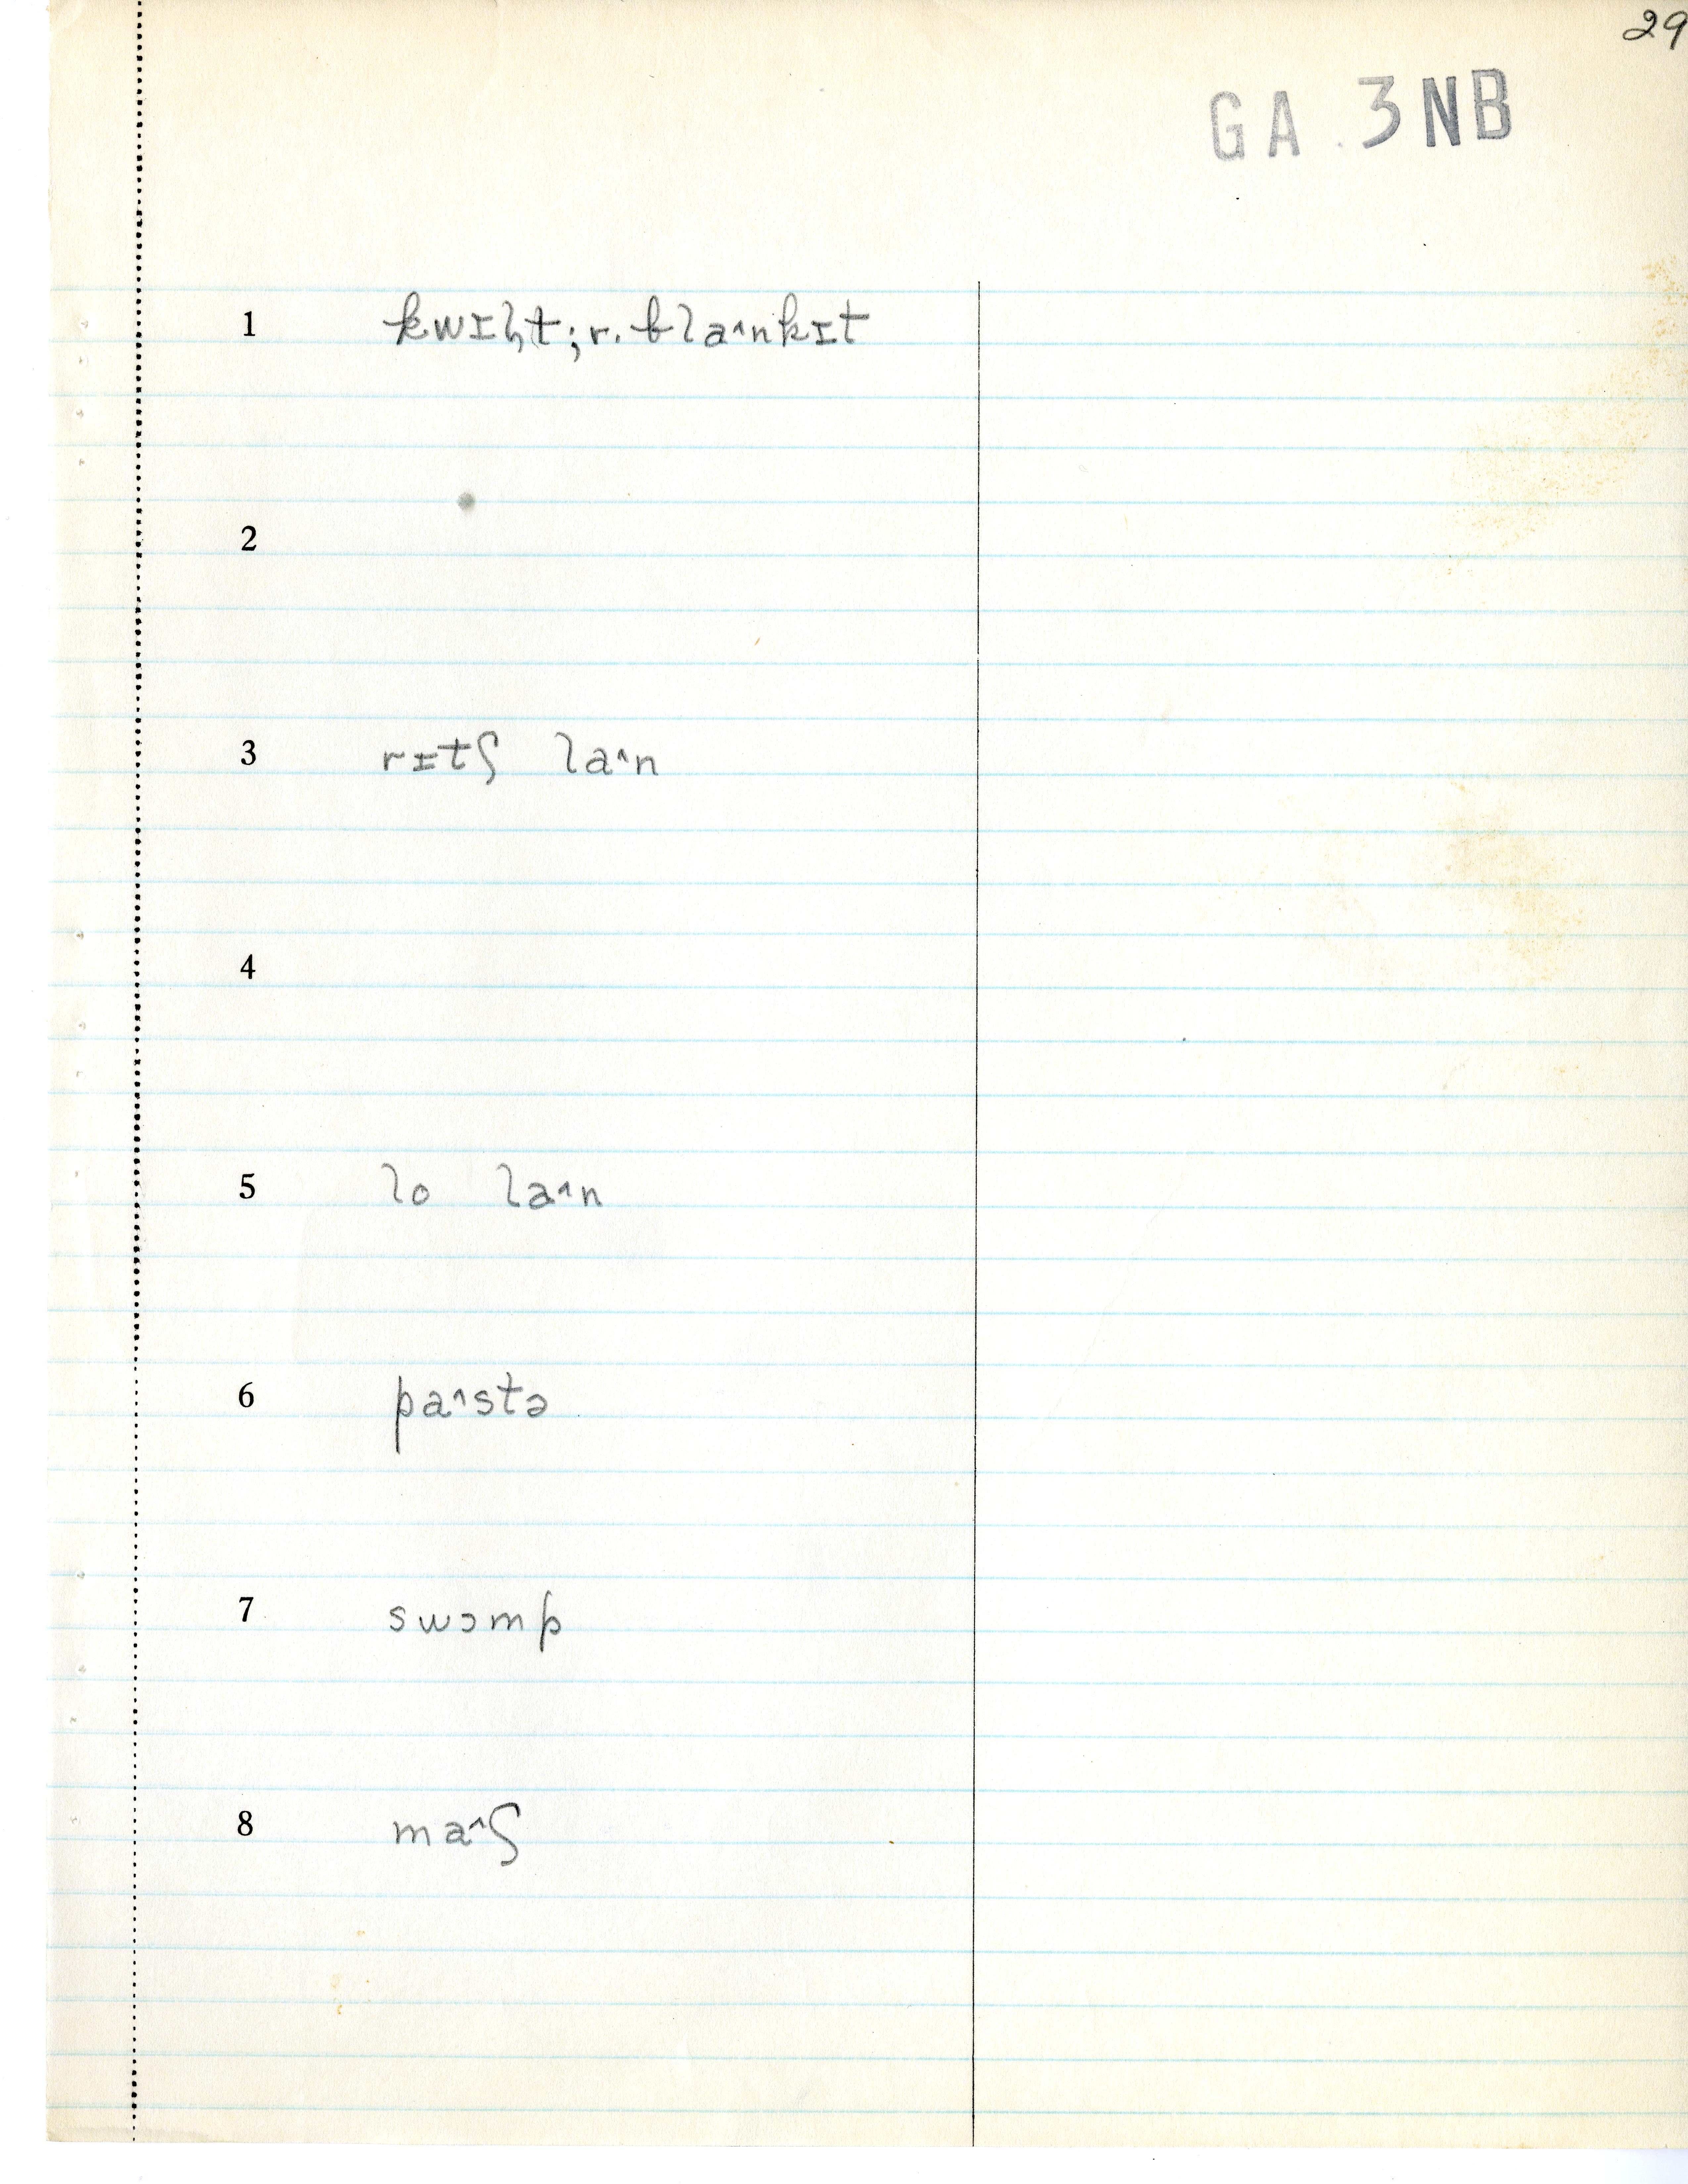 29
GA 3NB
1 kwɪl̡t; r. bla^nkɪt
2
3 rɪtʃ la^n
4
5 lo la^n
6 pa^stə
7 swɔmp
8 ma^ʃ